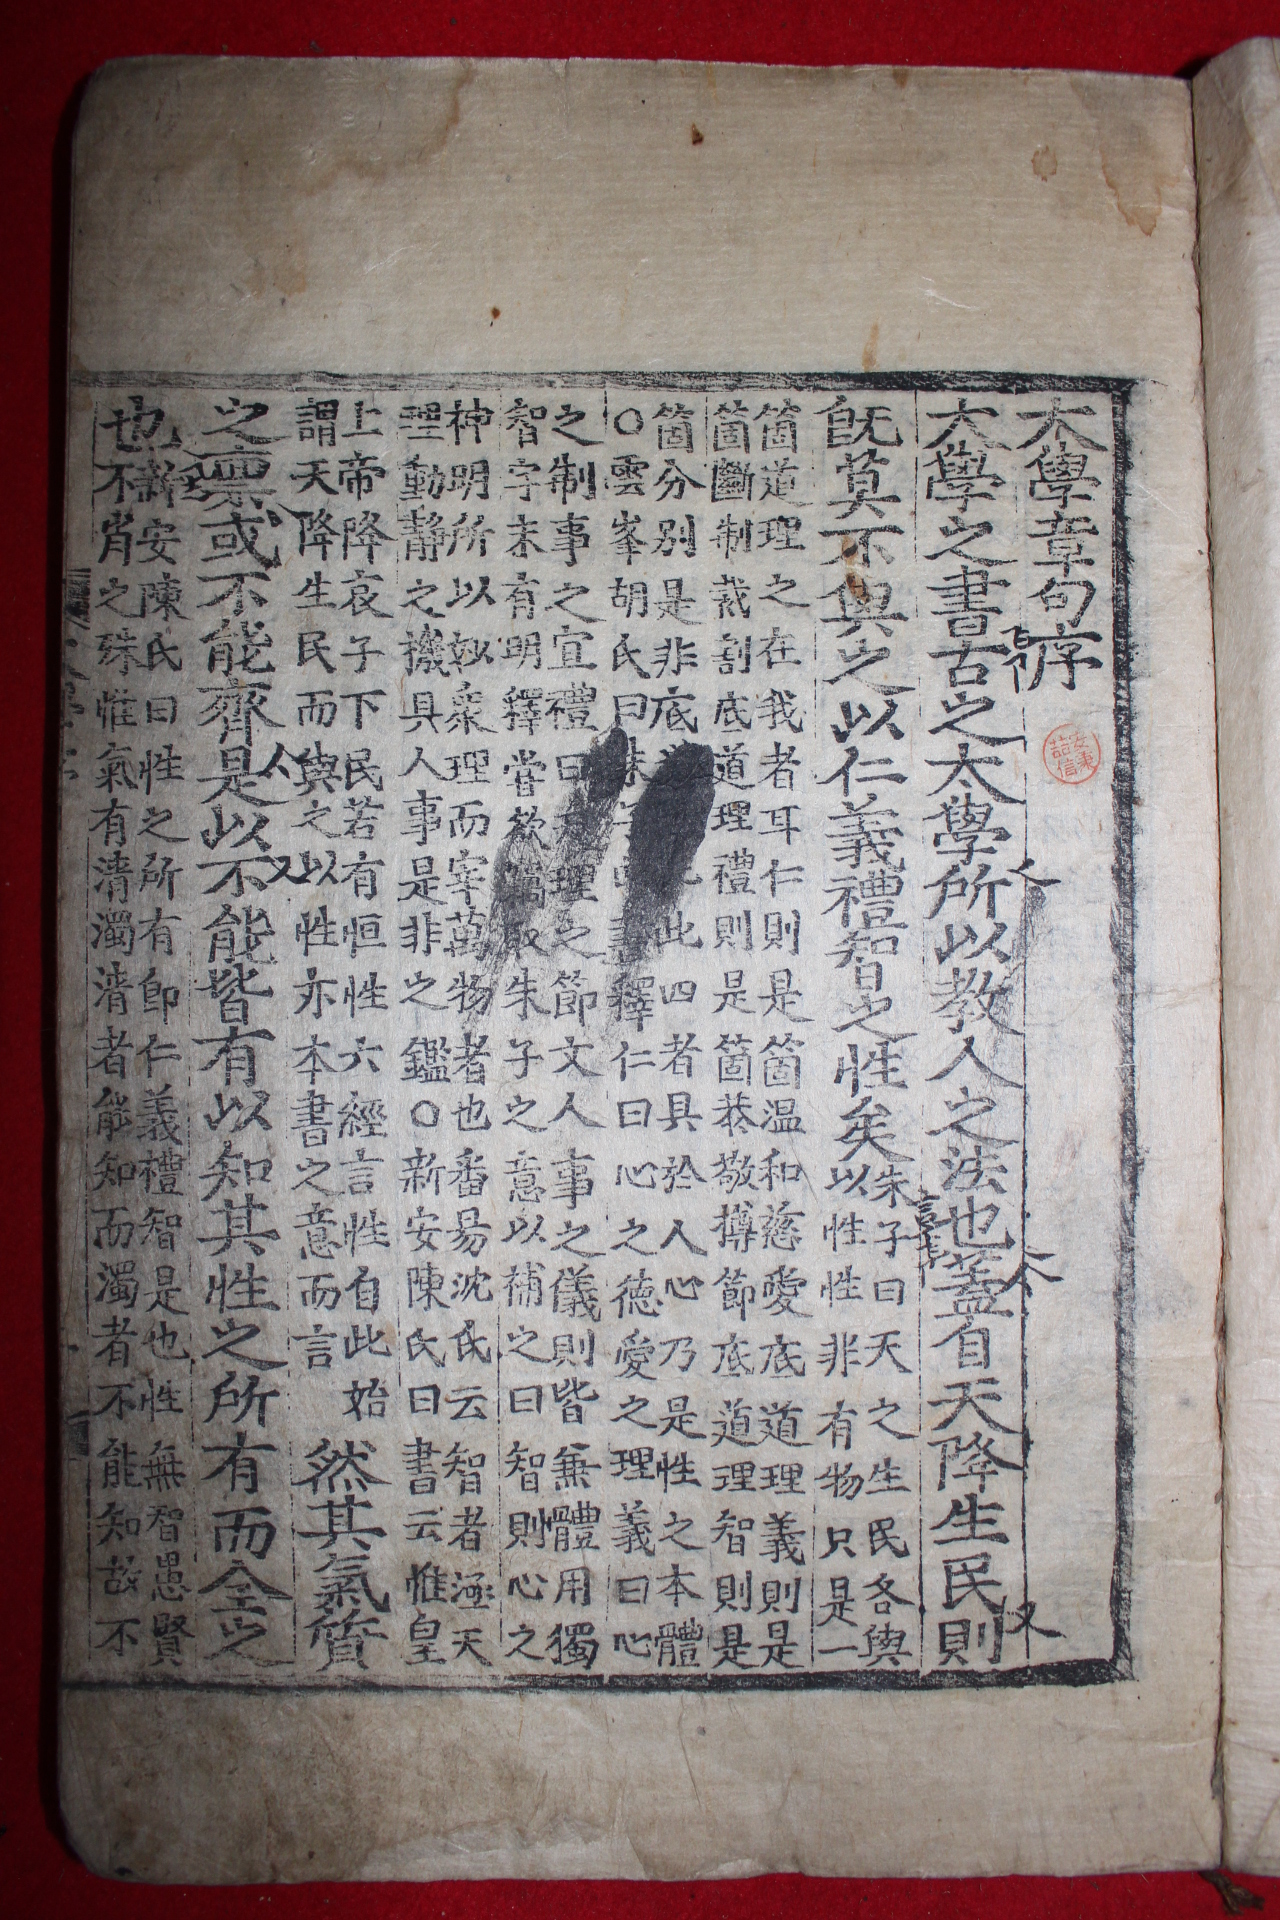 大學章句序
大學之書古之太學所以教人之法也蓋自天降生民則
旣莫不與之以仁義禮智之性矣
朱子曰天之生民各與
以性性非有物只是一
箇道理之在我者耳仁則是箇溫和慈愛底道理義則是
箇斷制裁割底道理禮則是箇恭敬撙節底道理智則是
箇分別是非底此四者具於人心乃是性之本體
〇雲峯胡氏曰朱子四書釋仁曰心之德愛之理義曰心
之制事之宜禮曰天理之節文人事之儀則皆兼體用獨
智字未有明釋嘗欲竊取朱子之意以補之曰智則心之
神明所以妙衆理而宰萬物者也番易沈氏云智者涵天
理動靜之機具人事是非之鑑〇新安陳氏曰書云惟皇
上帝降衷于下民若有恒性六經言性自此始
謂天降生民而與之以性亦本書之意而言
然其氣質
之稟或不能齊是以不能皆有以知其性之所有而全之
也
新安陳氏曰性之所有卽仁義禮智是也性無智愚賢
不肖之殊惟氣有淸濁淸者能知而濁者不能知故不